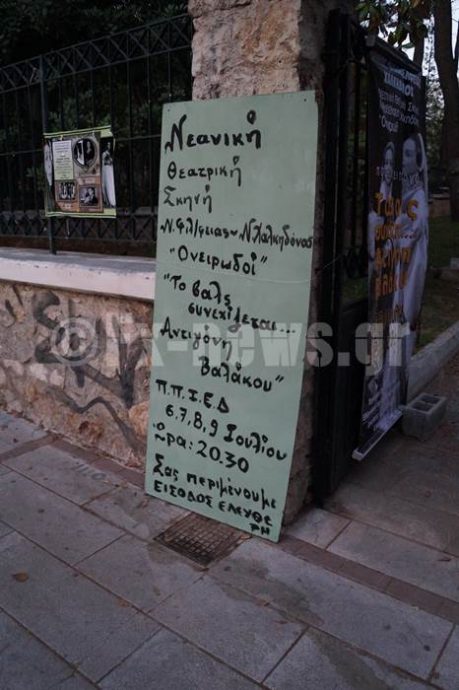 Νεανική
Θεατρική
Σκηνή
Ν.Φιλ/φειας-Ν.Χαλκηδόνας
"Ονειρωδοί"
"Το βαλς
συνεχίζεται...
Αντιγόνη
Βαλάκου"
Π.Π.Ι.Ε.Δ
6,7,8,9 Ιουλίου
Ώρα: 20.30
Σας περιμένουμε
ΕΙΣΟΔΟΣ ΕΛΕΥΘΕ
ΡΗ